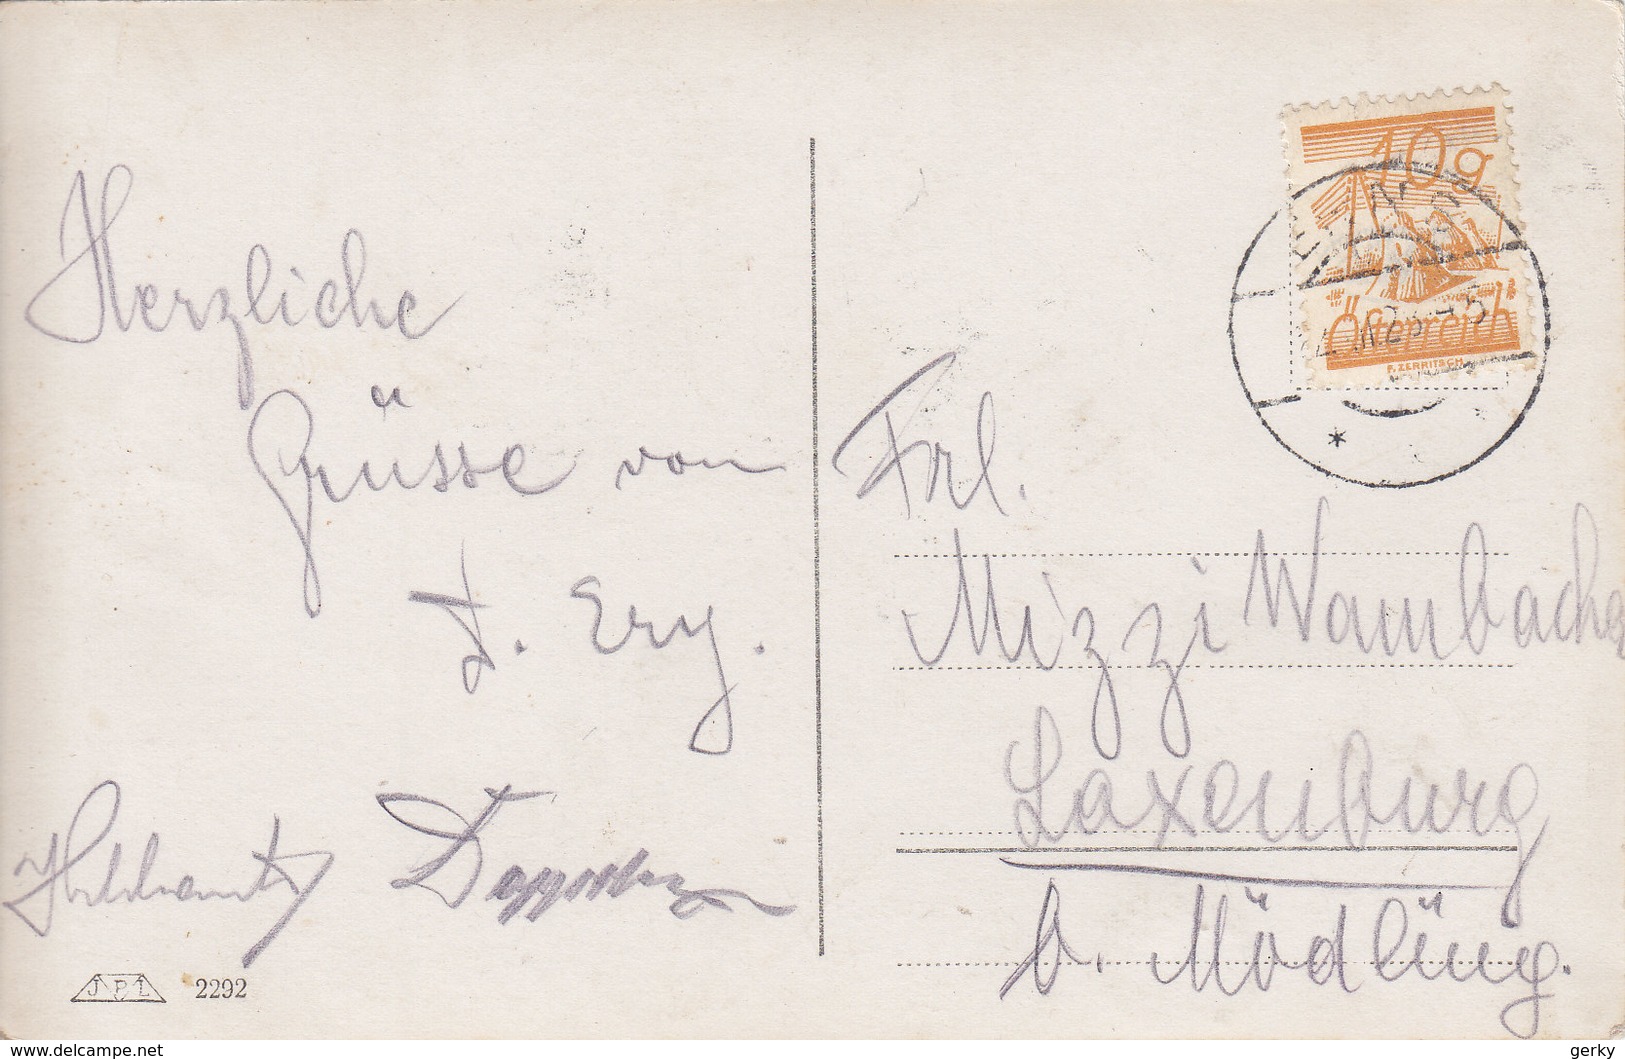 Herzliche
Grüsse von
Ery.
JBL 2292
10g
Österreich
F. ZERRITSCH
Frl.
Mizzi Wambacher
Laxenburg
b. Mödling.
www.delcampe.net
gerky